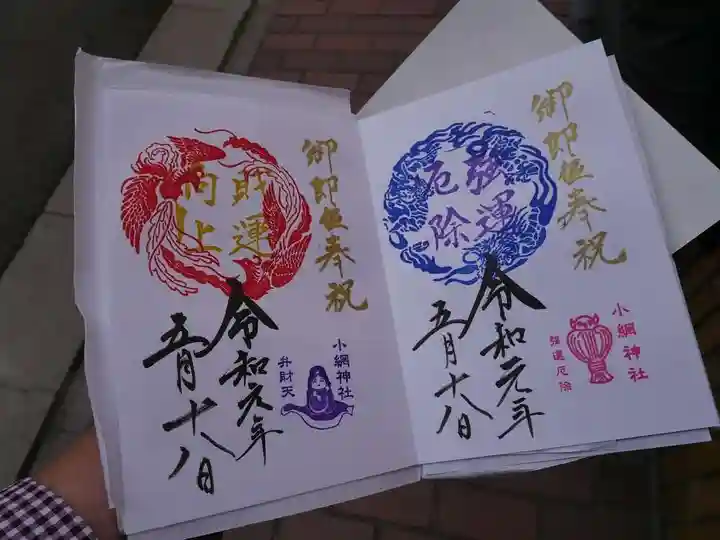 御即位奉祝
強運
厄除
令和元年
五月十八日
小網神社
強運厄除
御即位奉祝
財運
向上
令和元年
五月十八日
小網神社
弁財天